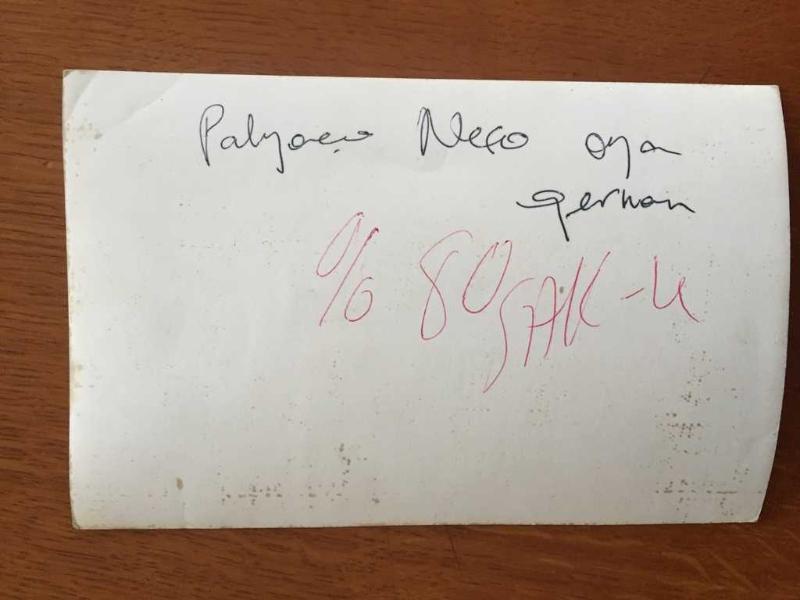 Palyaço Neco oya
german
% 80 SAK-U